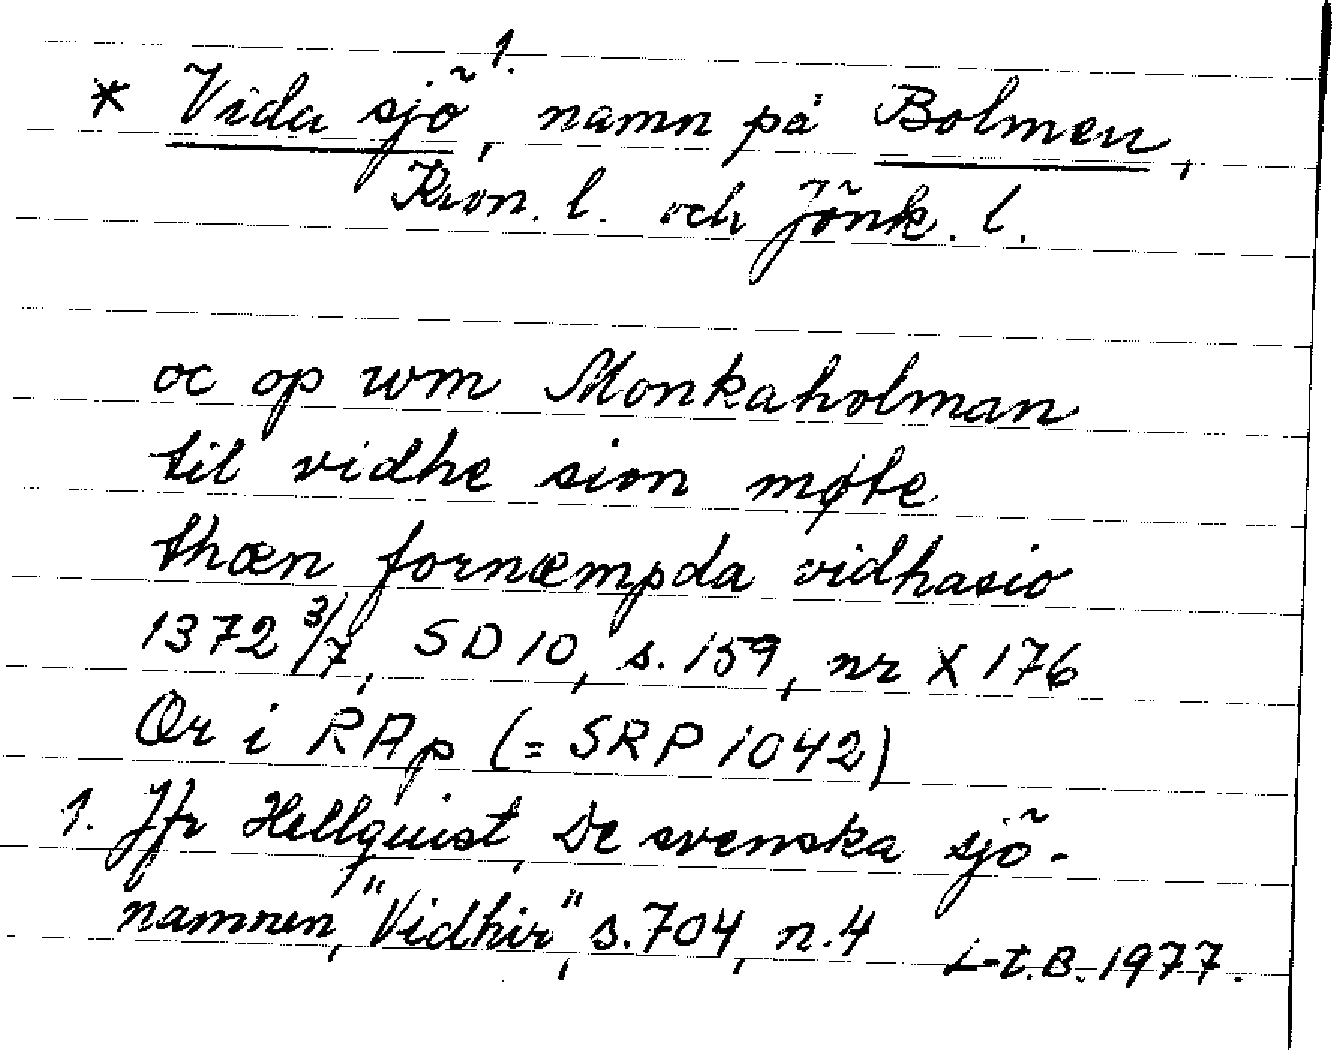 * Vida sjö¹·, namn på Bolmen,
Kron. l. och Jönk. l.
oc op wm Monkaholman
til vidhe sion møte
thæn fornæmpda vidhasio
1372 3/7, SD 10, s. 159, nr X 176
Or i RAp (= SRP 1042)
1. Jfr Hellquist, De svenska sjö-
namnen, "Vidhir", s. 704, n. 4 L-t.B. 1977.